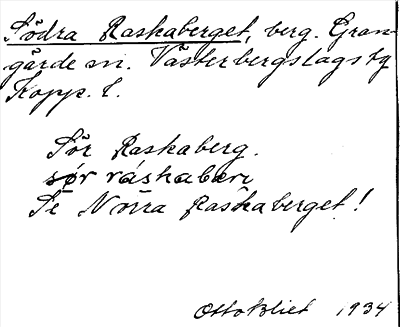 Södra Raskaberget, berg. Gran-
gärde sn. Västerbergslags tg
Kopp. l.
Sör Raskaberg.
sør ráskabærı
Se Norra Raskaberget!
Otto Blixt 1934